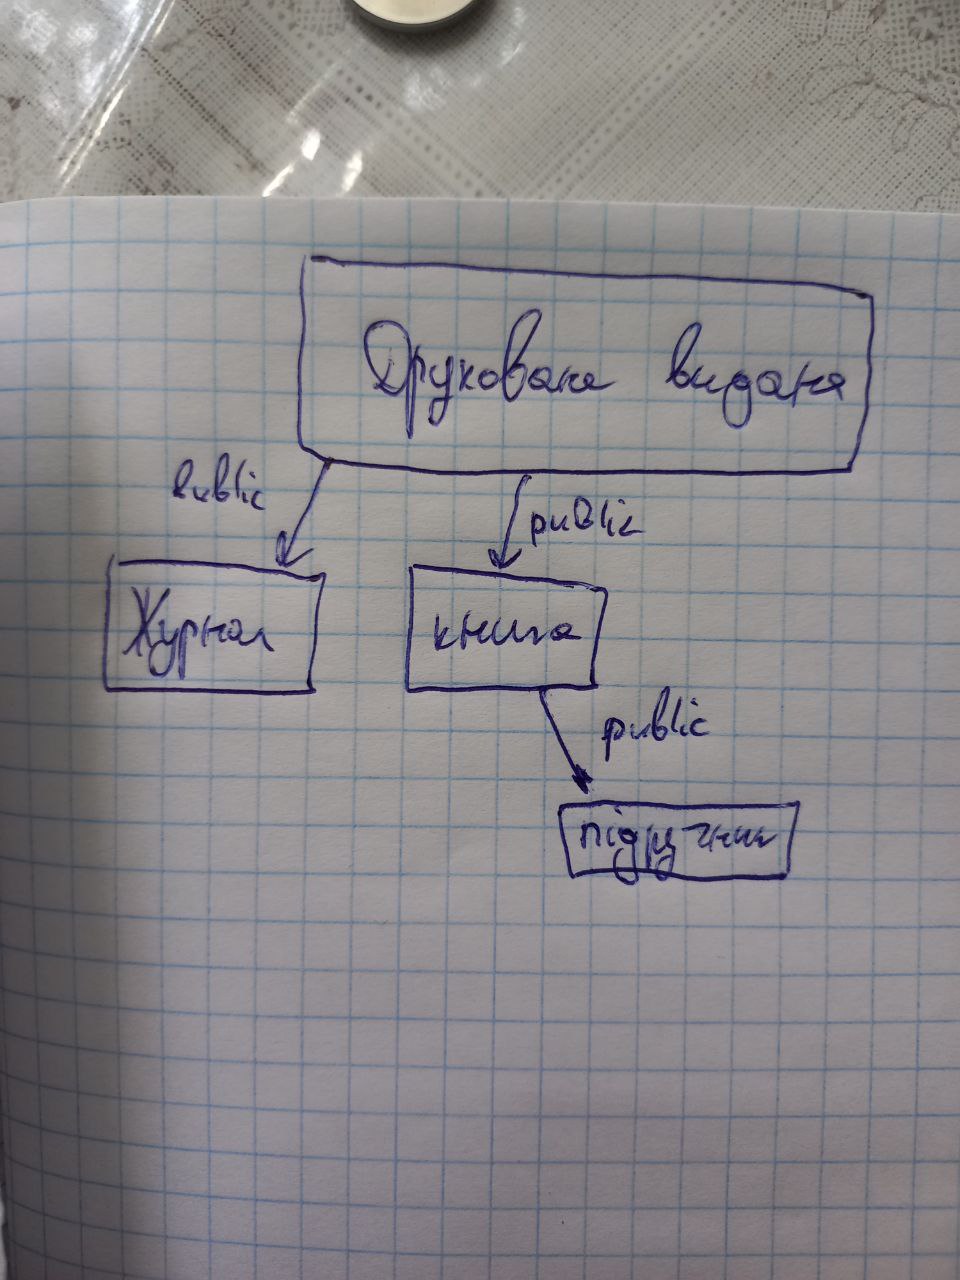 Друковане видання
public
public
Журнал
книга
public
підручник